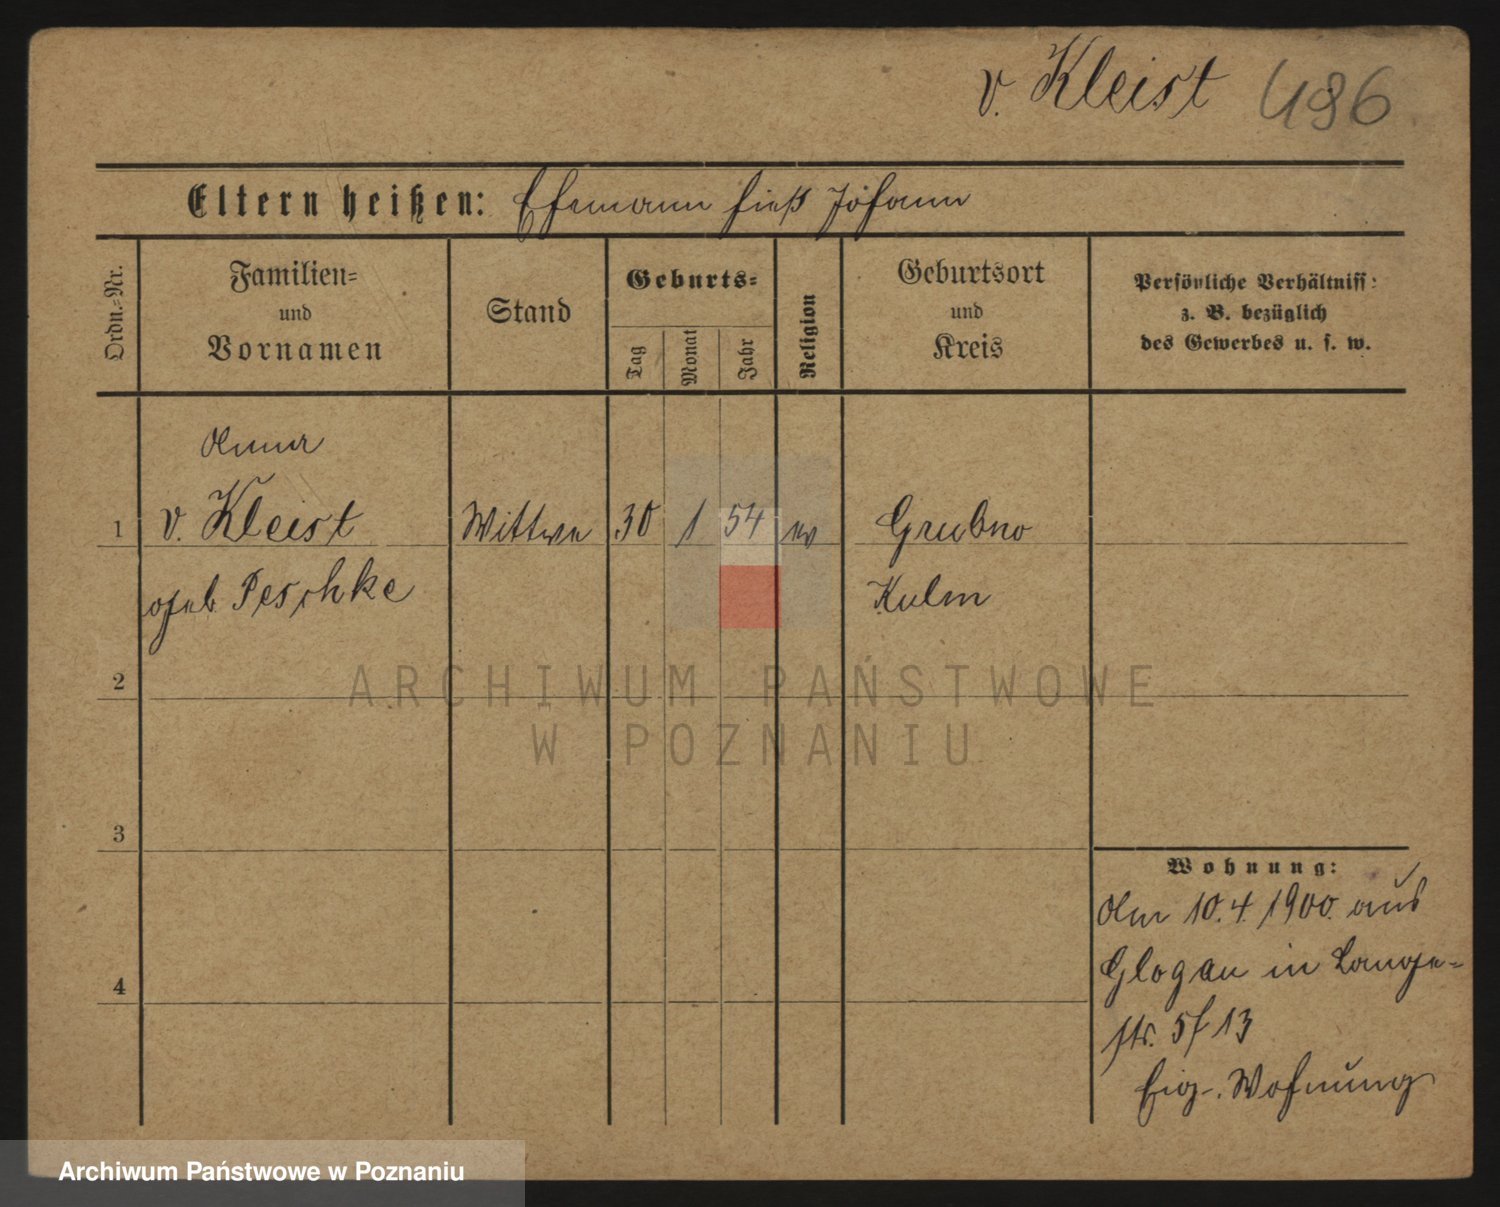 v. Kleist 486
Eltern heißen: Ehemann hieß Johann
Ordn.-Nr.
Familien-
und
Vornamen
Stand
Geburts-
Tag
Monat
Jahr
Religion
Geburtsort
und
Kreis
Persönliche Verhältniss:
z. B. bezüglich
des Gewerbes u. s. w.
Anna
1 v. Kleist Wittwe 30 1 54 ev Grubno
geb Peschke Kulm
2
ARCHIWUM PAŃSTWOWE
W POZNANIU
3
Wohnung:
Am 10.4.1900 aus
4 Glogau in Lange-
str. 5/13
Eig. Wohnung
Archiwum Państwowe w Poznaniu